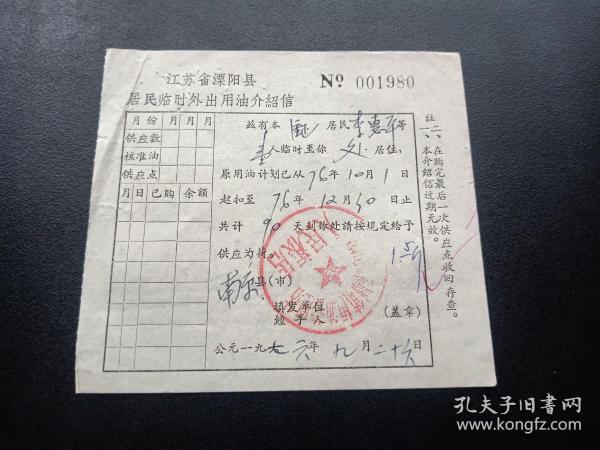 江苏省溧阳县
居民临时外出用油介紹信
No 001980
月份 月 月 月
供应数
核准油
供应点
月 日 已购 余额
兹有本 居民李惠平等
壹人临时至你 处居住,
原用油计划已从76年10月1日
起扣至 76年12月30日止
共计 90 天到你处請按規定给予
供应为荷。
南京县(市)
填发单位
經手人 (盖章)
公元一九七六年九月二十六日
註:
一、本介绍信过期无效。
二、在购完最后一次供应点收回存查。
孔夫子旧书网
www.kongfz.com